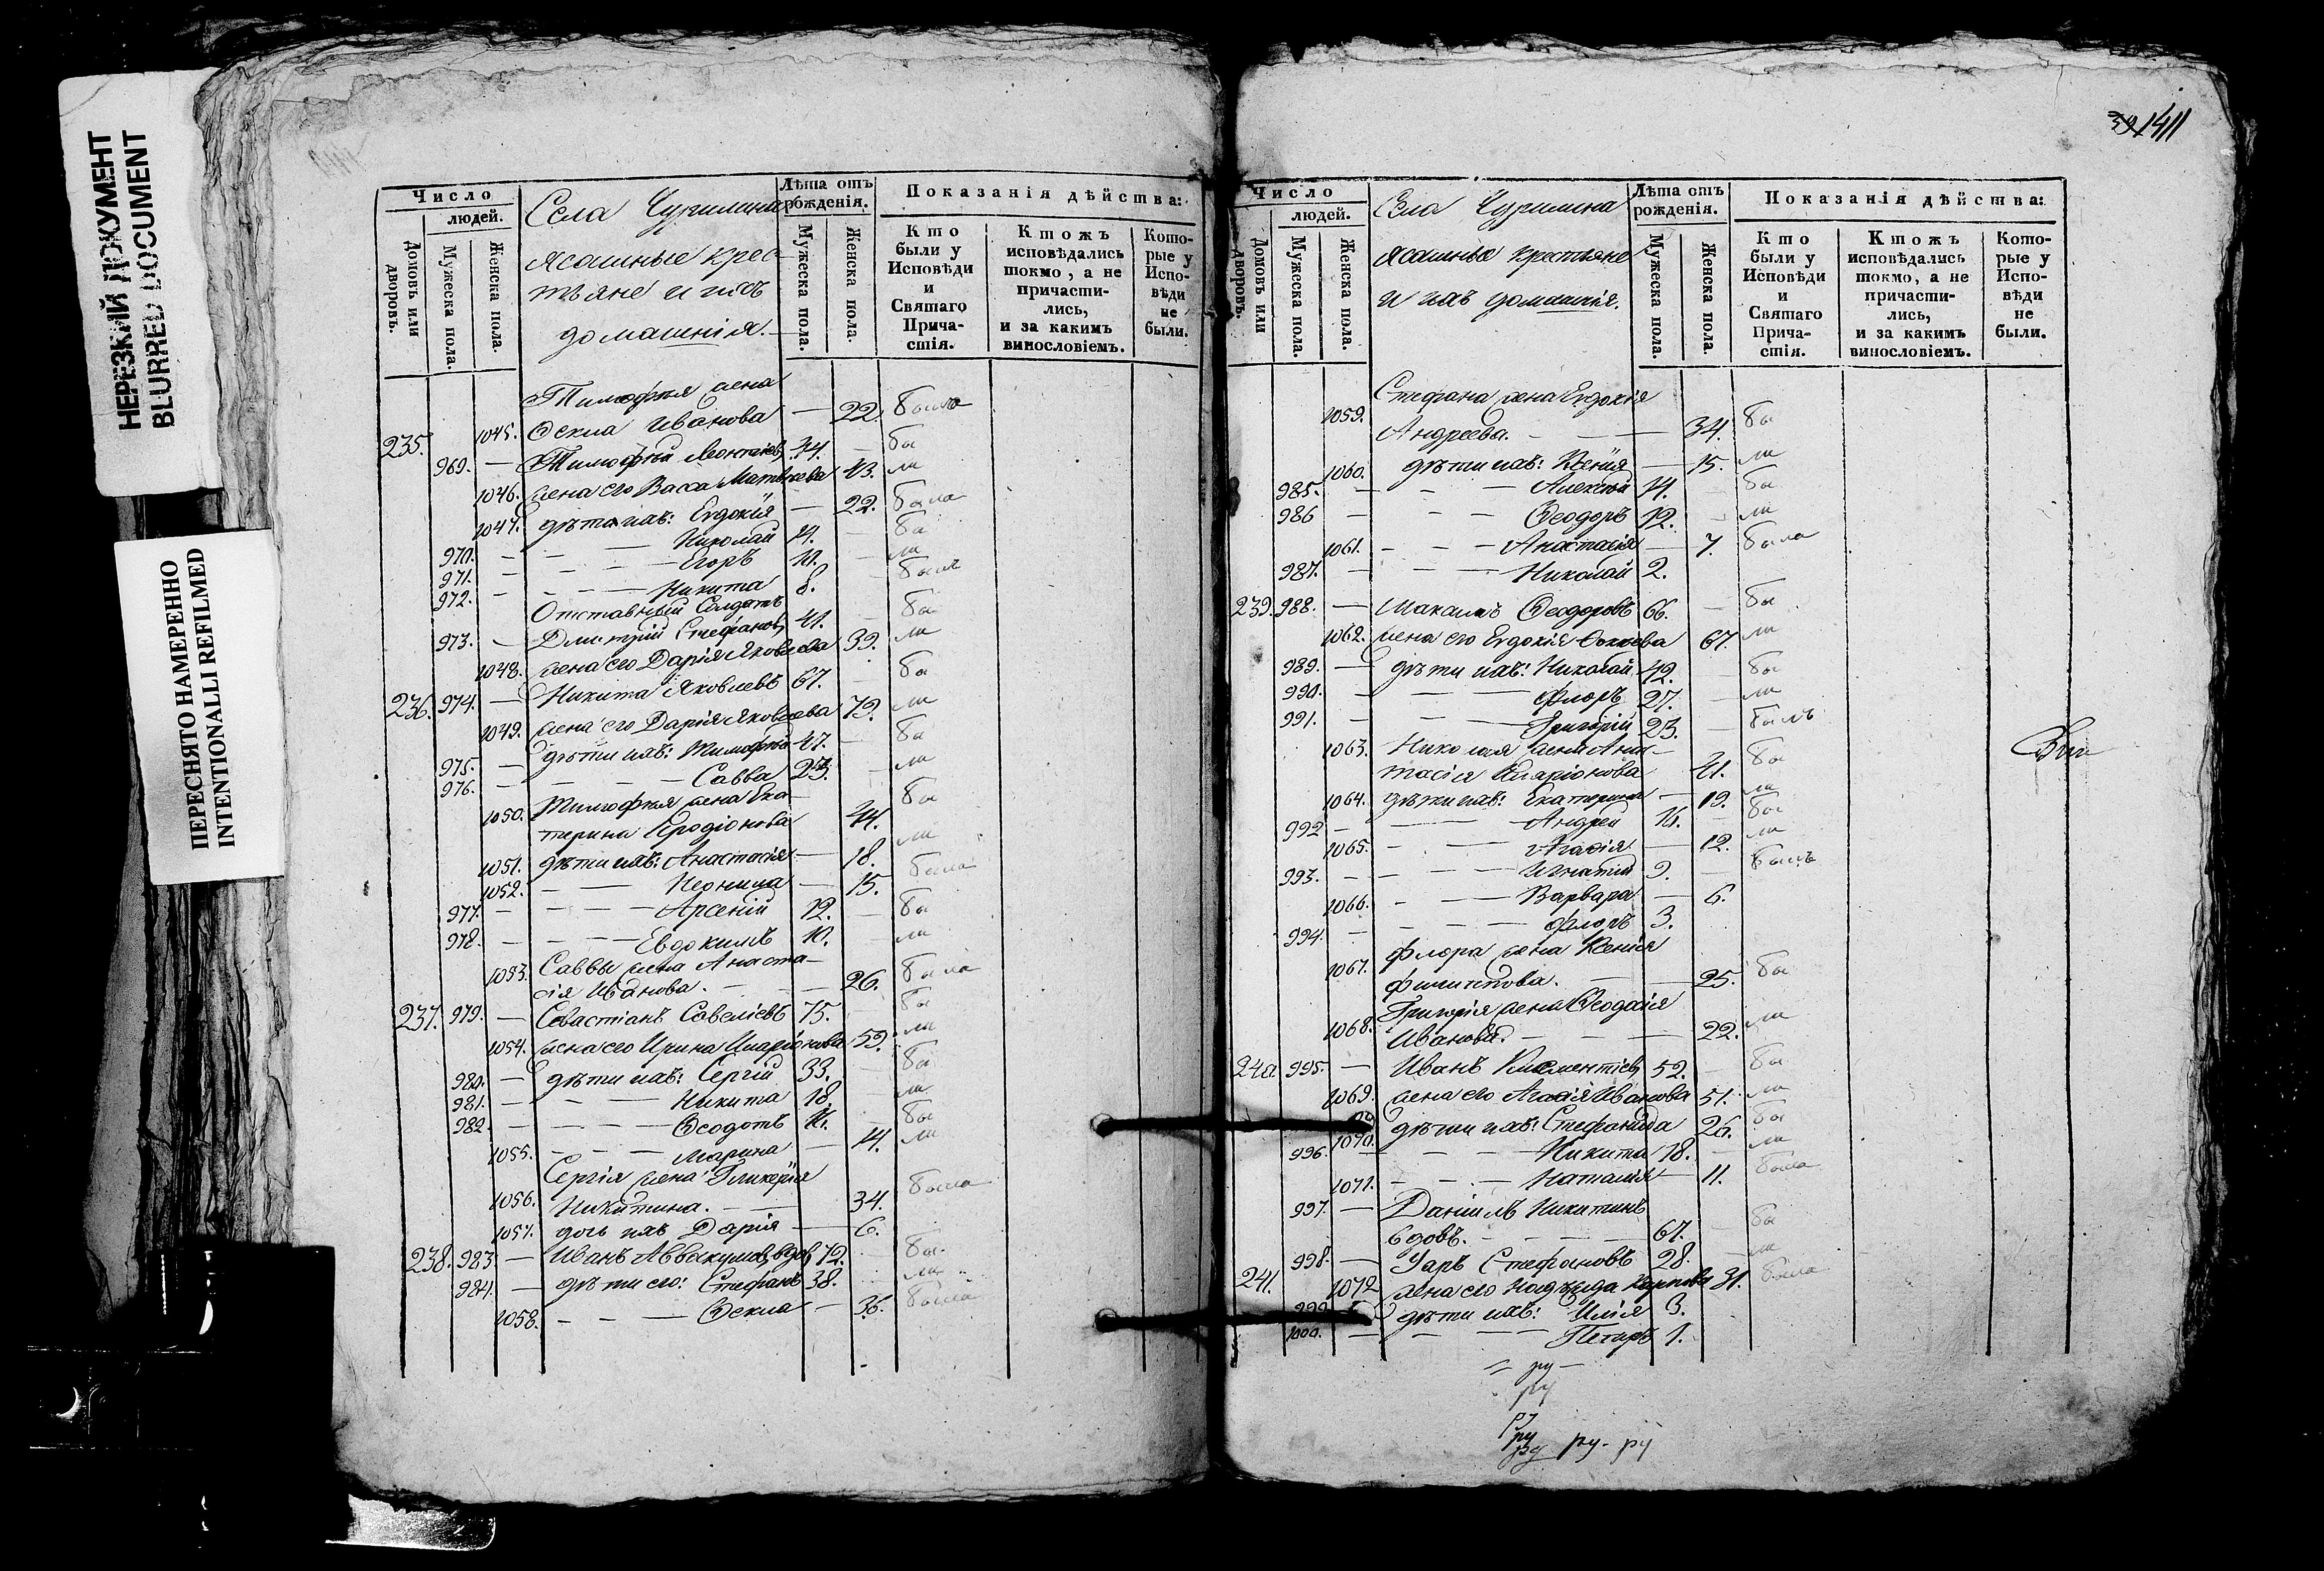 НЕРЕЗКИЙ ДОКУМЕНТ
BLURRED DOCUMENT
ПЕРЕСНЯТО НАМЕРЕННО
INTENTIONALLI REFILMED
Число
людей.
Домовъ или дворовъ.
Мужеска пола.
Женска пола.
Села Чурилина
ясашные крес-
тьяне и ихъ
домашнія.
Лѣта отъ рождения.
Мужеска пола.
Женска пола.
Показанія дѣйства:
Кто были у Исповѣди и Святаго Прича-стія.
Ктожъ исповѣдались токмо, а не причасти-лись, и за какимъ винословіемъ.
Кото-рые у Испо-вѣди не были.
Тимофея жена
1045. Ѳекла Иванова — 22. была
235. 969. — Тимофей Леонтіевъ 34. бы
1046. жена его Васса Матвѣева 43. ли
1047. дѣти ихъ: Евдокія — 22. была
970. — Николай 14. бы
971. — Егоръ 10. ли
972. — Никита 8. былъ
Отставный Солдатъ
973. — Дмитрій Стефановъ 41. бы
1048. жена его Дарія Яковлева 39. ли
236. 974. — Никита Яковлевъ 67. бы
1049. жена его Дарія Яковлева 79. ли
975. — дѣти ихъ: Тимофей 47. бы
976. — Савва 23. ли
1050. Тимофея жена Ека-
терина Иродіонова 44. бы
1051. дѣти ихъ: Анастасія — 18. ли
1052. — Неонила — 15. была
977. — Арсеній 12. бы
978. — Евдокимъ 10. ли
1053. Саввы жена Анаста-
сія Иванова. — 26. была
237. 979. — Севастіанъ Савеліевъ 75. бы
1054. жена его Ирина Иларіонова 59. ли
980. — дѣти ихъ: Сергій 33. бы
981. — Никита 18. ли
982. — Ѳеодотъ 16. бы
1055. — Марина — 14. ли
Сергія жена Гликерія
1056. Никитина. — 34. была
1057. дочь ихъ Дарія — 6.
238. 983. — Иванъ Аввакумовъ, вдов. 72. бы
984. — дѣти его: Стефанъ 38. ли
1058. — Ѳекла — 36. была
1411
Число
людей.
Домовъ или дворовъ.
Мужеска пола.
Женска пола.
Села Чурилина
ясашные крестьяне
и ихъ домашнія.
Лѣта отъ рожденія.
Мужеска пола.
Женска пола.
Показанія дѣйства:
Кто были у Исповѣди и Святаго Прича-стія.
Ктожъ исповѣдались токмо, а не причасти-лись, и за какимъ винословіемъ.
Кото-рые у Испо-вѣди не были.
Стефана жена Евдокія
1059. Андреева. — 34. бы
1060. дѣти ихъ: Ксенія — 15. ли
985. — Алексѣй 14. бы
986 — Ѳеодоръ 12. ли
1061. — Анастасія — 7. была
987. — Николай 2.
239. 988. — Максимъ Ѳеодоровъ 66. бы
1062. жена его Евдокія 67. ли
989. — дѣти ихъ: Николай 42. бы
990. — Флоръ 27. ли
991. — Григорій 23. былъ
1063. Николая жена Анас-
тасія Иларіонова 41. бы
1064. дѣти ихъ: Екатерина — 19. ли
992 — Андрей 14. бы
1065. — Агафія — 12. ли
993. — Игнатій 9. былъ
1066. — Варвара — 6.
994. — Флоръ 3.
Флора жена Ксенія
1067. Филиппова. — 25. бы
Григорія жена Ѳеодосія
1068. Иванова. — 22. ли
240. 995. — Иванъ Климентіевъ 52. бы
1069. жена его Агафія Иванова 51. ли
1070. дѣти ихъ: Стефанида 26. бы
996. — Никита 18. ли
1071. — Наталія — 11. была
997. — Даніилъ Никитинъ
вдовъ. — 67. бы
998. — Уаръ Стефановъ 28. ли
241. 1072 жена его Надежда Карпова 31. была
999. дѣти ихъ: Илія 3.
1000. — Петръ 1.
ру
ру
ру
ру ру- ру
ру